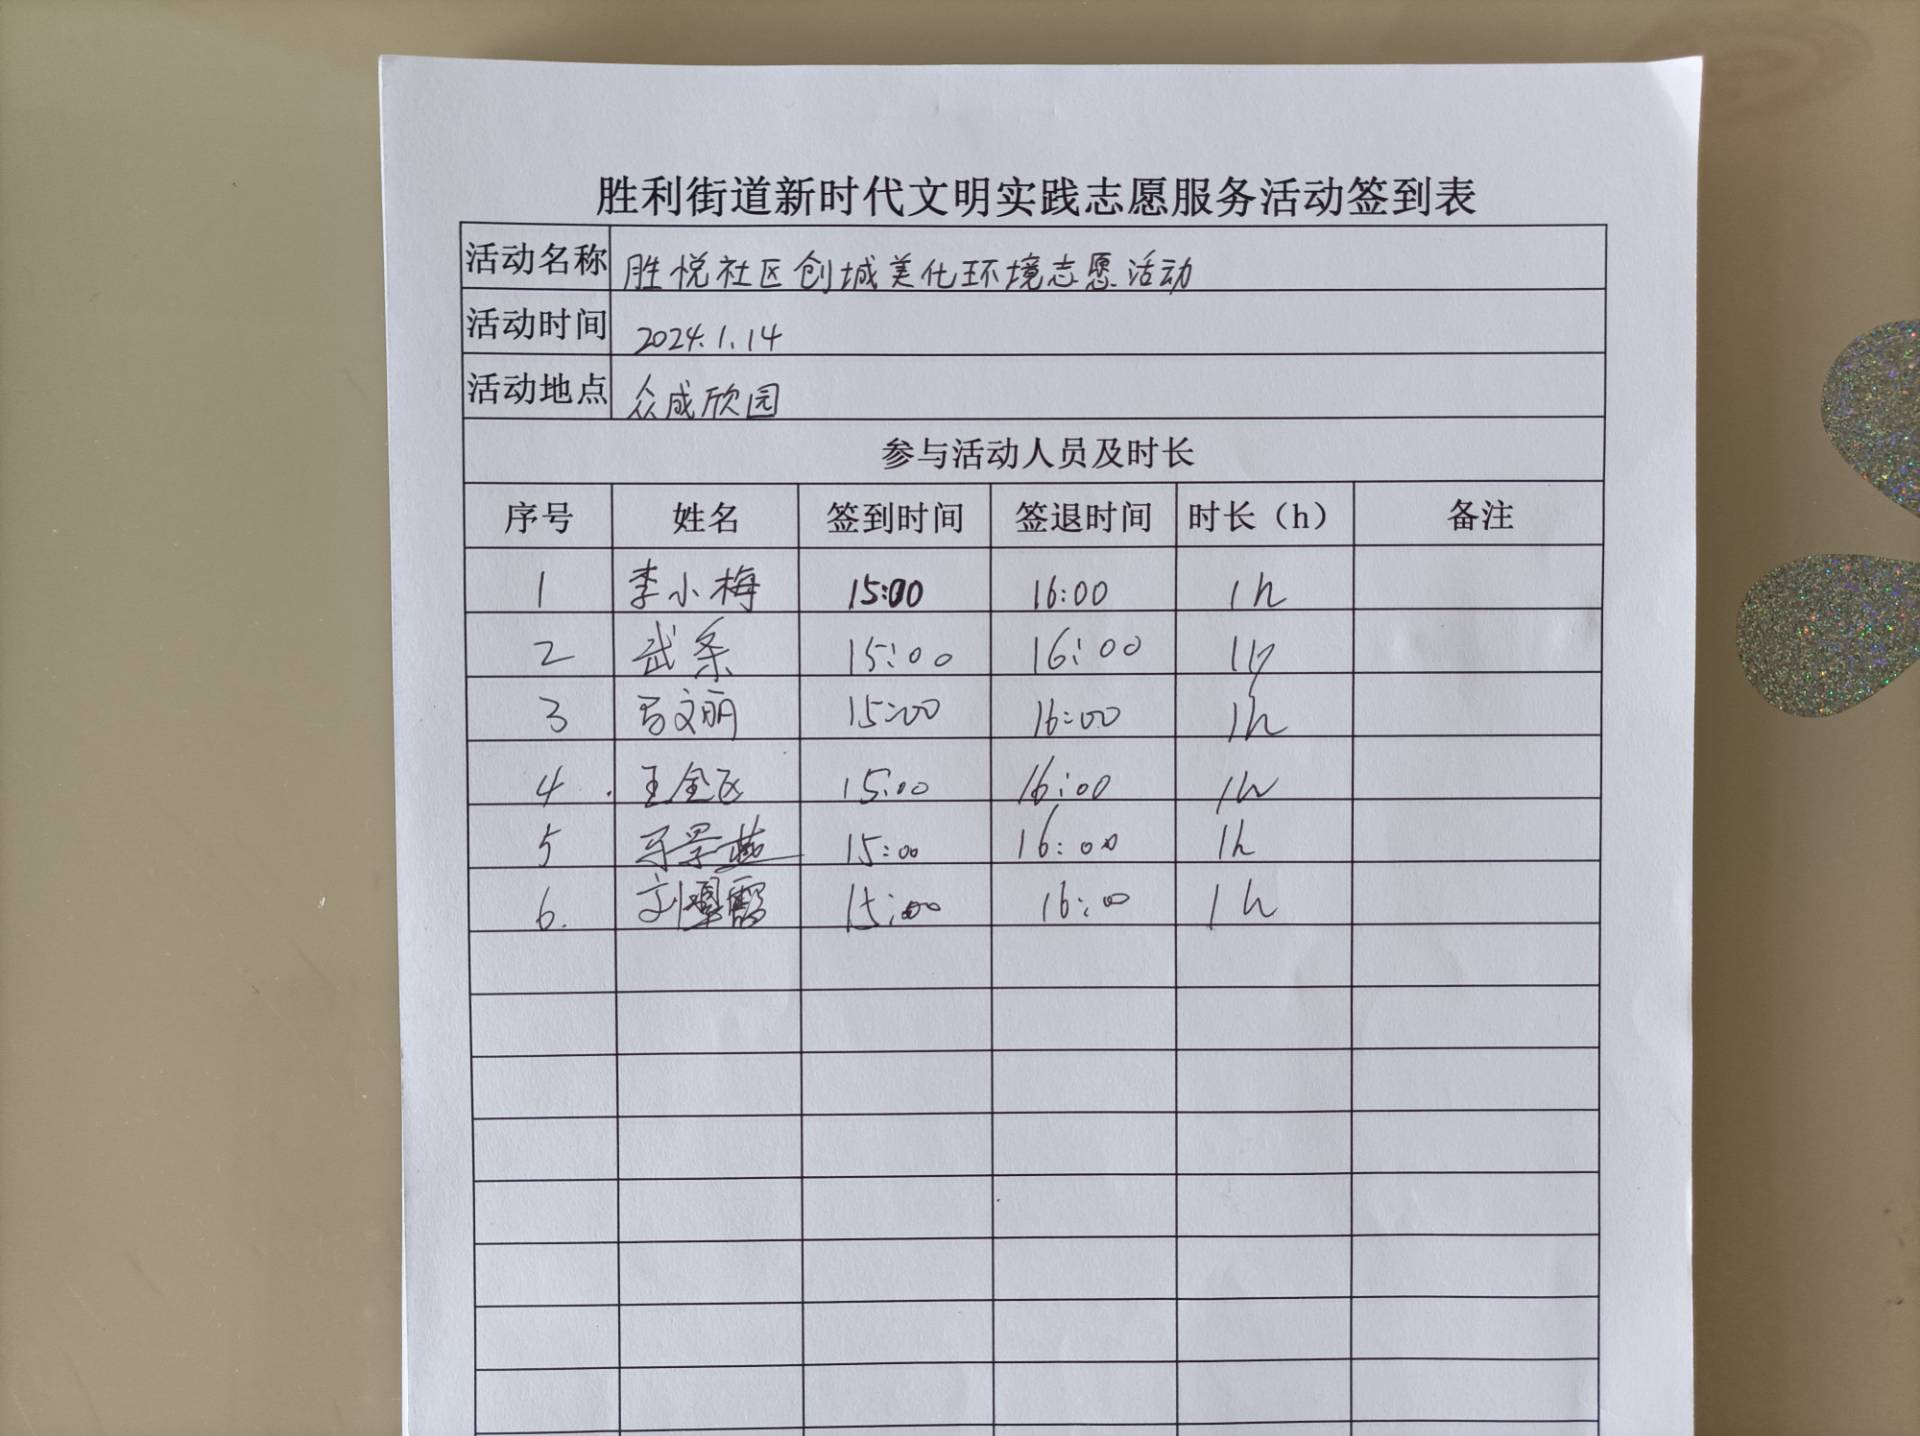 胜利街道新时代文明实践志愿服务活动签到表
活动名称 胜悦社区创城美化环境志愿活动
活动时间 2024.1.14
活动地点 众成欣园
参与活动人员及时长
序号 姓名 签到时间 签退时间 时长（h） 备注
1 李小梅 15:00 16:00 1h
2 武 15:00 16:00 1h
3 马文丽 15:00 16:00 1h
4 王金 15:00 16:00 1h
5 15:00 16:00 1h
6. 刘霞 15:00 16:00 1h